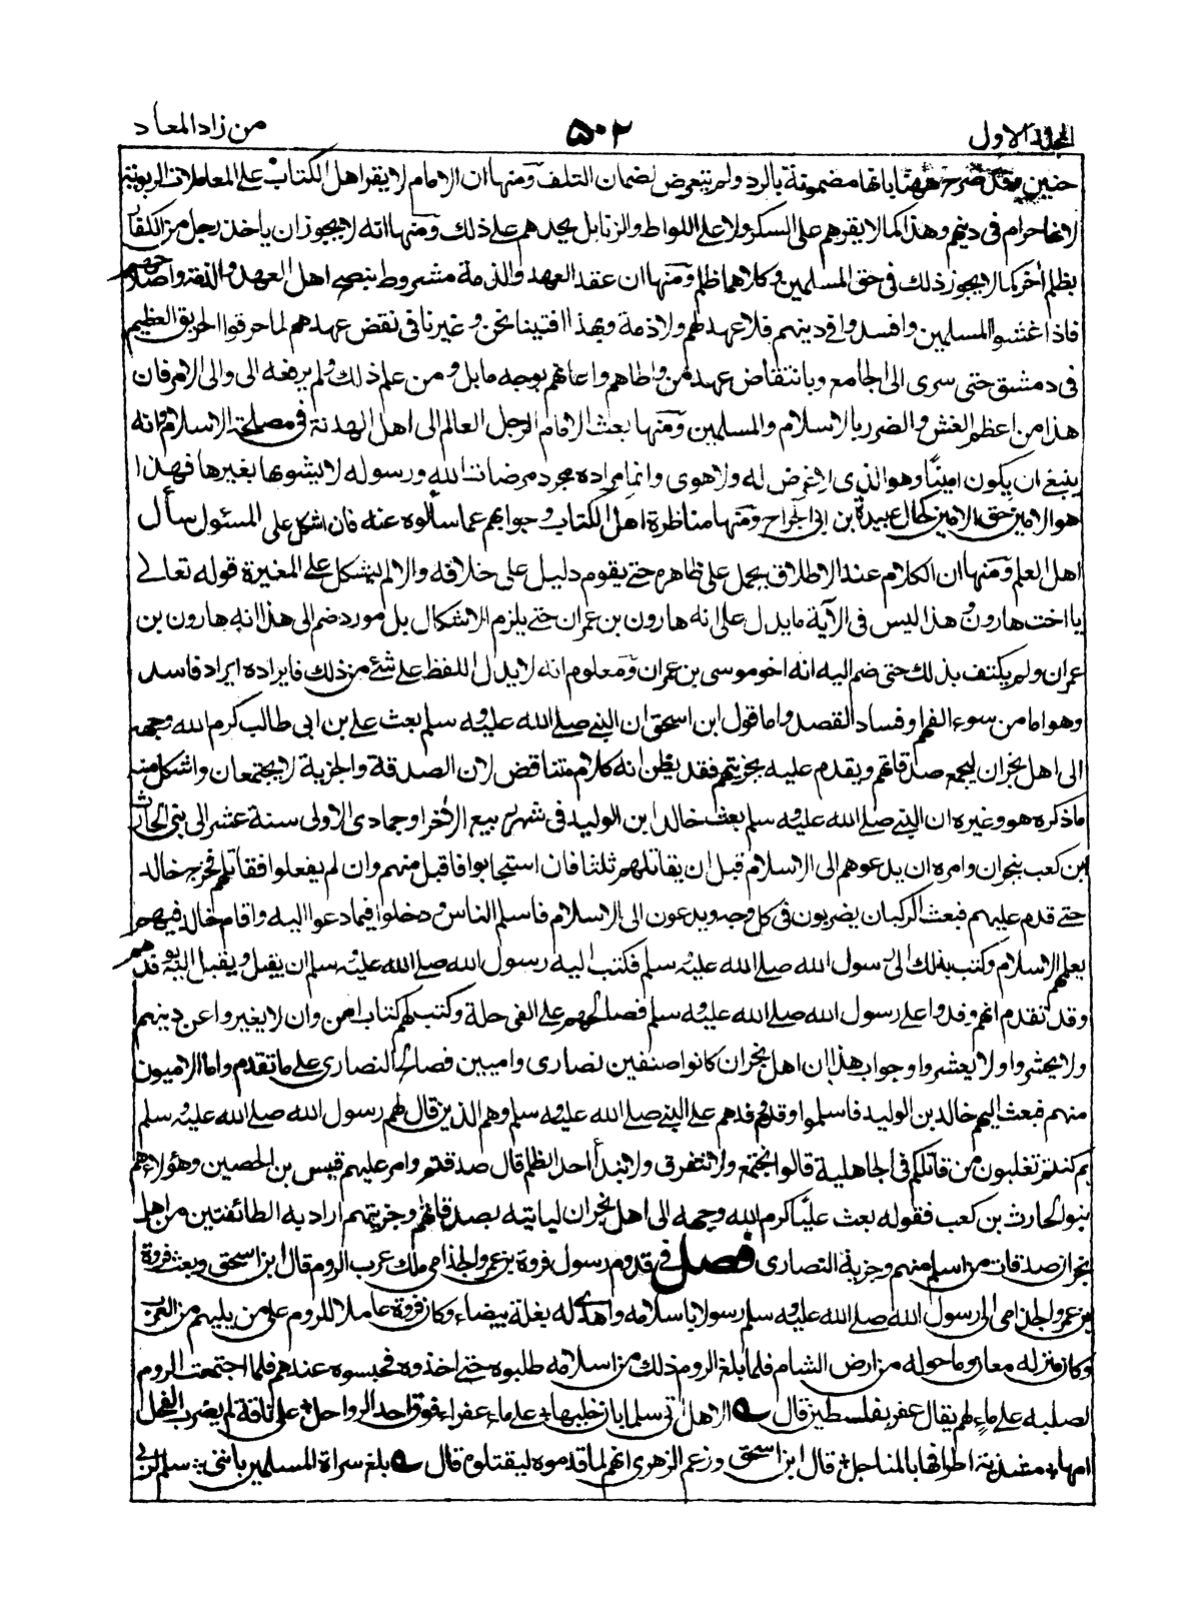 المجلد الاول ٥٠٢ من زاد المعاد
حنين وقد صرح ههنا بانها مضمونة بالرد ولم يتعرض لضمان التلف ومنها ان الامام لا يقر اهل الكتاب على المعاملات الربوية
لانها حرام فى دينهم وهذا كما لا يقرهم على السكر ولا على اللواط والزنا بل يحدهم على ذلك ومنها انه لا يجوز ان ياخذ رجل من الكفار
بظلم آخر كما لا يجوز ذلك فى حق المسلمين وكلاهما ظلم ومنها ان عقد العهد والذمة مشروط بنصح اهل العهد والذمة واصلاحهم
فاذا غشوا المسلمين وافسدوا فى دينهم فلا عهد لهم ولا ذمة وبهذا افتينا نحن وغيرنا فى نقض عهدهم لما حرقوا الحريق العظيم
فى دمشق حتى سرى الى الجامع وبانتقاض عهد من واطاهم واعانهم بوجه ما بل ومن علم ذلك ولم يرفعه الى والى الامر فان
هذا من اعظم الغش والضرر بالاسلام والمسلمين ومنها بعث الامام الرجل العالم الى اهل الهدنة فى مصلحة الاسلام وانه
ينبغى ان يكون امينًا وهو الذى لا غرض له ولا هوى وانما مراده مجرد مرضات الله ورسوله لا يشوبها بغيرها فهذا
هو الامين حق الامين كحال عبيدة بن ابى الجراح ومنها مناظرة اهل الكتاب وجوابهم عما سألوه عنه فان اشكل على المسئول سأل
اهل العلم ومنها ان الكلام عند الاطلاق يحمل على ظاهره حتى يقوم دليل على خلافه والا لم يشكل على المغيرة قوله تعالى
يا اخت هارون وهذا ليس فى الآية ما يدل على انه هارون بن عمران حتى يلزم الاشكال بل مورد ضم الى هذا انه هارون بن
عمران ولم يكتف بذلك حتى ضم اليه انه اخو موسى بن عمران ومعلوم انه لا يدل اللفظ على شئ من ذلك فايراده ايراد فاسد
وهو اما من سوء الفهم او فساد القصد واما قول ابن اسحق ان النبى صلى الله عليه وسلم بعث على بن ابى طالب كرم الله وجهه
الى اهل نجران ليجمع صدقاتهم ويقدم عليه بجزيتهم فقد يظن انه كلام متناقض لان الصدقة والجزية لا يجتمعان واشكل منه
ما ذكره هو وغيره ان النبى صلى الله عليه وسلم بعث خالد ابن الوليد فى شهر ربيع الآخر او جمادى الاولى سنة عشر الى بنى الحارث
ابن كعب بنجران وامره ان يدعوهم الى الاسلام قبل ان يقاتلهم ثلثا فان استجابوا فاقبل منهم وان لم يفعلوا فقاتلهم فخرج خالد
حتى قدم عليهم فبعث الركبان يضربون فى كل وجه ويدعون الى الاسلام فاسلم الناس ودخلوا فيما دعوا اليه واقام خالد فيهم
يعلمهم الاسلام وكتب بذلك الى رسول الله صلى الله عليه وسلم فكتب اليه رسول الله صلى الله عليه وسلم ان يقبل ويقبل اليه وفدهم
وقد تقدم انهم وفدوا على رسول الله صلى الله عليه وسلم فصالحهم على الفى حلة وكتب لهم كتاب امن وان لا يغيروا عن دينهم
ولا يحشروا ولا يعشروا وجواب هذا ان اهل نجران كانوا صنفين نصارى واميين فصالح النصارى على ما تقدم واما الاميون
منهم فبعث اليهم خالد بن الوليد فاسلموا وقدم وفدهم على النبى صلى الله عليه وسلم وهم الذين قال لهم رسول الله صلى الله عليه وسلم
بم كنتم تغلبون من قاتلكم فى الجاهلية قالوا نجتمع ولا نتفرق ولا نبدأ احدا بظلم قال صدقتم وامر عليهم قيس بن الحصين وهؤلاء هم
بنو الحارث بن كعب فقوله بعث عليًا كرم الله وجهه الى اهل نجران لياتيه بصدقاتهم وجزيتهم اراد به الطائفتين من اهل
نجران صدقات من اسلم منهم وجزية النصارى فصل فى قدوم رسول فروة بن عمرو الجذامى ملك عرب الروم قال ابن اسحق وبعث فروة
بن عمرو الجذامى الى رسول الله صلى الله عليه وسلم رسولا باسلامه واهدى له بغلة بيضاء وكان فروة عاملا للروم على من يليهم من العرب
وكان منزله معان وما حوله من ارض الشام فلما بلغ الروم ذلك من اسلامه طلبوه حتى اخذوه فحبسوه عندهم فلما اجتمعت الروم
لصلبه على ماء لهم يقال عفرى بفلسطين قال ؎ الا هل اتى سلمى بان خليلها ÷ على ماء عفرا فوق احد الرواحل ÷ على ناقة لم يضرب الفحل
امها ÷ مشذبة اطرافها بالمناجل ÷ قال ابن اسحق وزعم الزهرى انهم لما قدموه ليقتلوه قال ؎ بلغ سراة المسلمين باننى ÷ سلم لربى